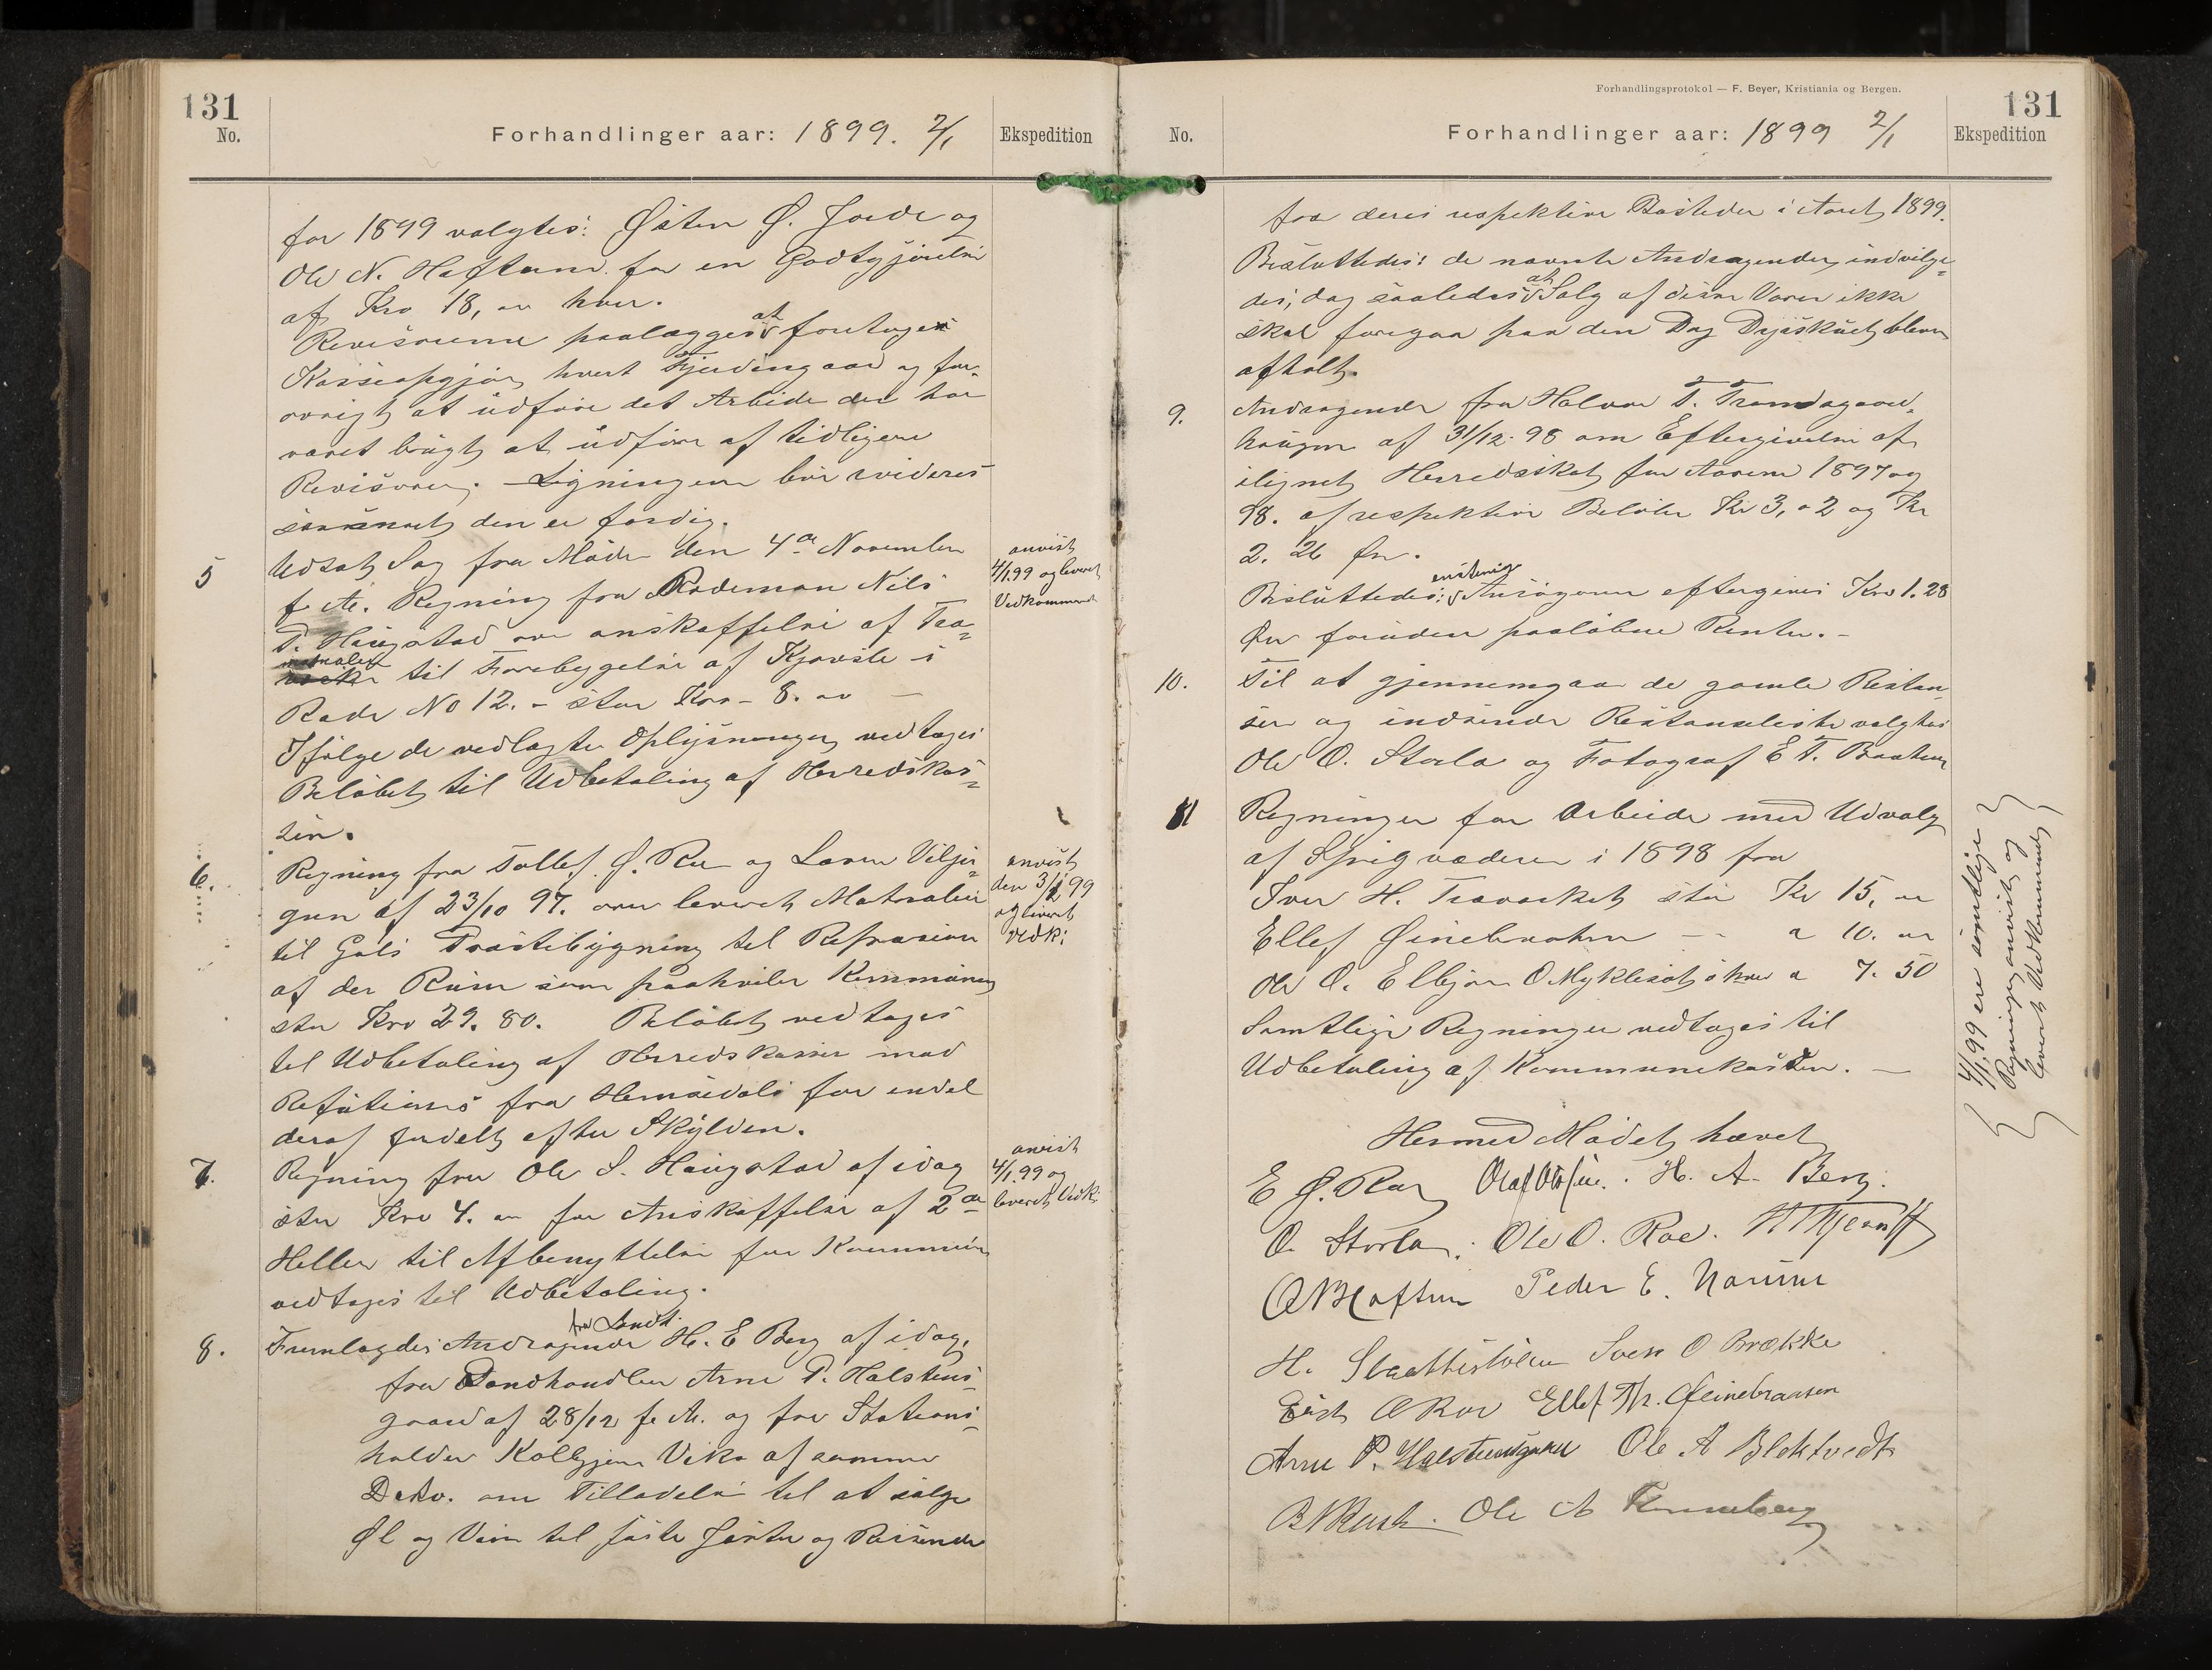 131
No.
Forhandlinger aar: 1899. 2/1
Ekspedition
for 1899 valgtes: Østen Ø. Jorde og
Ole N. Haftum for en Godtgjørelse
af Kro 18, oo hver.
Revisorerne paalægges at foretages
Kasseopgjør hvert Fjerdingaar og for-
øvrigt at udføre det Arbeide der har
været brugt at udføre af tidligere
Revisorer. Ligningen bør revideres
saasnart den er færdig.
5
Udsat Sag fra Møde den 4de November
f. A. Regning fra Rodeman Nils
P. Haugstad over anskaffelse af Træ-
materialer til Forebyggelse af Kjøvele i
Rode No 12. - stor Kro - 8. oo —
Ifølge de vedlagte Oplysninger vedtages
Beløbet til Udbetaling af Herredskas-
sen.
anvist
4/1.99 og leveret
Vedkommende
6.
Regning fra Tollef Ø. Rue og Lars Vilju-
gren af 23/10 97. over leveret Materialier
til Gols Præstebygning til Reparasion
af der Rum som paahviler Kommunen
stor Kro 29. 80. Beløbet vedtages
til Udbetaling af Herredskassen mod
Refutions fra Hemsedals for endel
deraf fordelt efter Skylden.
anvist
den 3/1 99
og leveret
Vedk:
7.
Regning fra Ole S. Haugstad af idag
stor Kro 4. oo for Anskaffelse af 2de
Heller til Afbenyttelse for Kommunen
vedtages til Udbetaling.
anvist
4/1.99 og
leveret Vedk:
8.
Fremlagdes Andragende fra Landh. H. E Berg af idag,
fra Landhandler Arne P. Halstens-
gaard af 28/12 f. A. og fra Stations-
holder Kolbjørn Viko af samme
Dato. om Tilladelse til at sælge
Øl og Vin til faste Gjester og Reisende
Forhandlingsprotokol — F. Beyer, Kristiania og Bergen.
131
No.
Forhandlinger aar: 1899 2/1
Ekspedition
fra deres respektive Bosteder i Aaret 1899.
Besluttedes: de nævnte Andragender indvilge-
des, dog saaledes at Salg af disse Varer ikke
skal foregaa paa den Dag Dyrskuet bliver
afholt.
9.
Andragende fra Halvor T. Trondsgaard-
haugen af 31/12. 98 om Eftergivelse af
ilignet Herredsskat for Aarene 1897 og
98. af respektive Beløb Kr 3, 02 og Kr
2. 26 Øre.
Besluttedes: enstemig Ansøgeren eftergives Kro 1. 28
Øre foruden paaløbne Renter. -
10.
Til at gjennemgaa de gamle Restan-
ser og indsende Restanseliste valgtes
Ole O. Storla og Fotograf E T. Braaten
11
Regninger for Arbeide med Udvalg
af Skrigvæderen i 1898 fra
Iver H. Trøværket stor Kr 15, oo
Ellef Øinebraaten — " 10. oo
Ole O. Elbjør O Myklesøt á hver a 7. 50
Samtlige Regninger vedtages til
Udbetaling af Kommunekassen. —
4/1.99 ere samtlige
Regninger anvist og
leveret Vedkommende
Hermed Mødet hævet
E Ø. Roe Olaf Olsen. H. A. Berg.
O. Storla. Ole O. Roe.
O N Haftun Peder E. Narum
H. Slaattestølen Sven O Brække
Eirik O Roe Ellef Th. Øeinebraaten
Arne P. Halstensgaard Ole A Blektvedt
B N Rust. Ole A